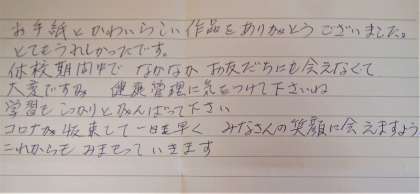 お手紙とかわいらしい作品をありがとうございました。
とてもうれしかったです。
休校期間中で なかなか お友だちにも会えなくて
大変ですね 健康管理に気をつけて下さいね
学習もしっかりとがんばって下さい
コロナが収束して一日も早く みなさんの笑顔に会えますよう
これからもみまもっていきます